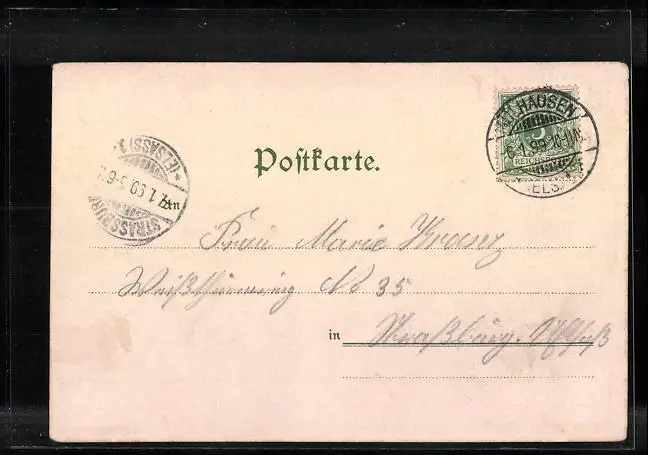 MÜLHAUSEN
6.1.99. 10-11 N.
(ELS.)
5
REICHSPOST
Postkarte.
(ELSASS) 1.
7.1.99. 5-6 V.
STRASSBURG
An
Frau Marie Kranz
Weißthurmring No 35
in Straßburg. i/Elsaß